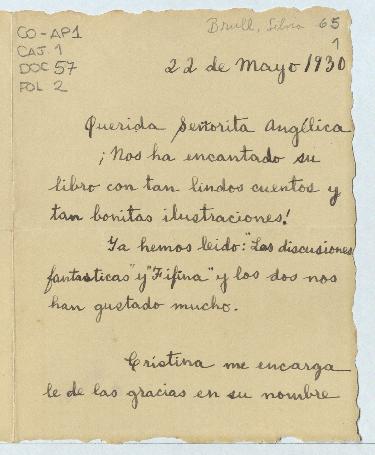 CO-AP1
CAJ. 1
DOC 57
FOL 2
Brull, Silvia 65
1
22 de Mayo 1930
Querida Señorita Angélica
¡Nos ha encantado su
libro con tan lindos cuentos y
tan bonitas ilustraciones!
Ya hemos leido: "Las discusiones
fantasticas" y "Fifina" y los dos nos
han gustado mucho.
Cristina me encarga
le de las gracias en su nombre